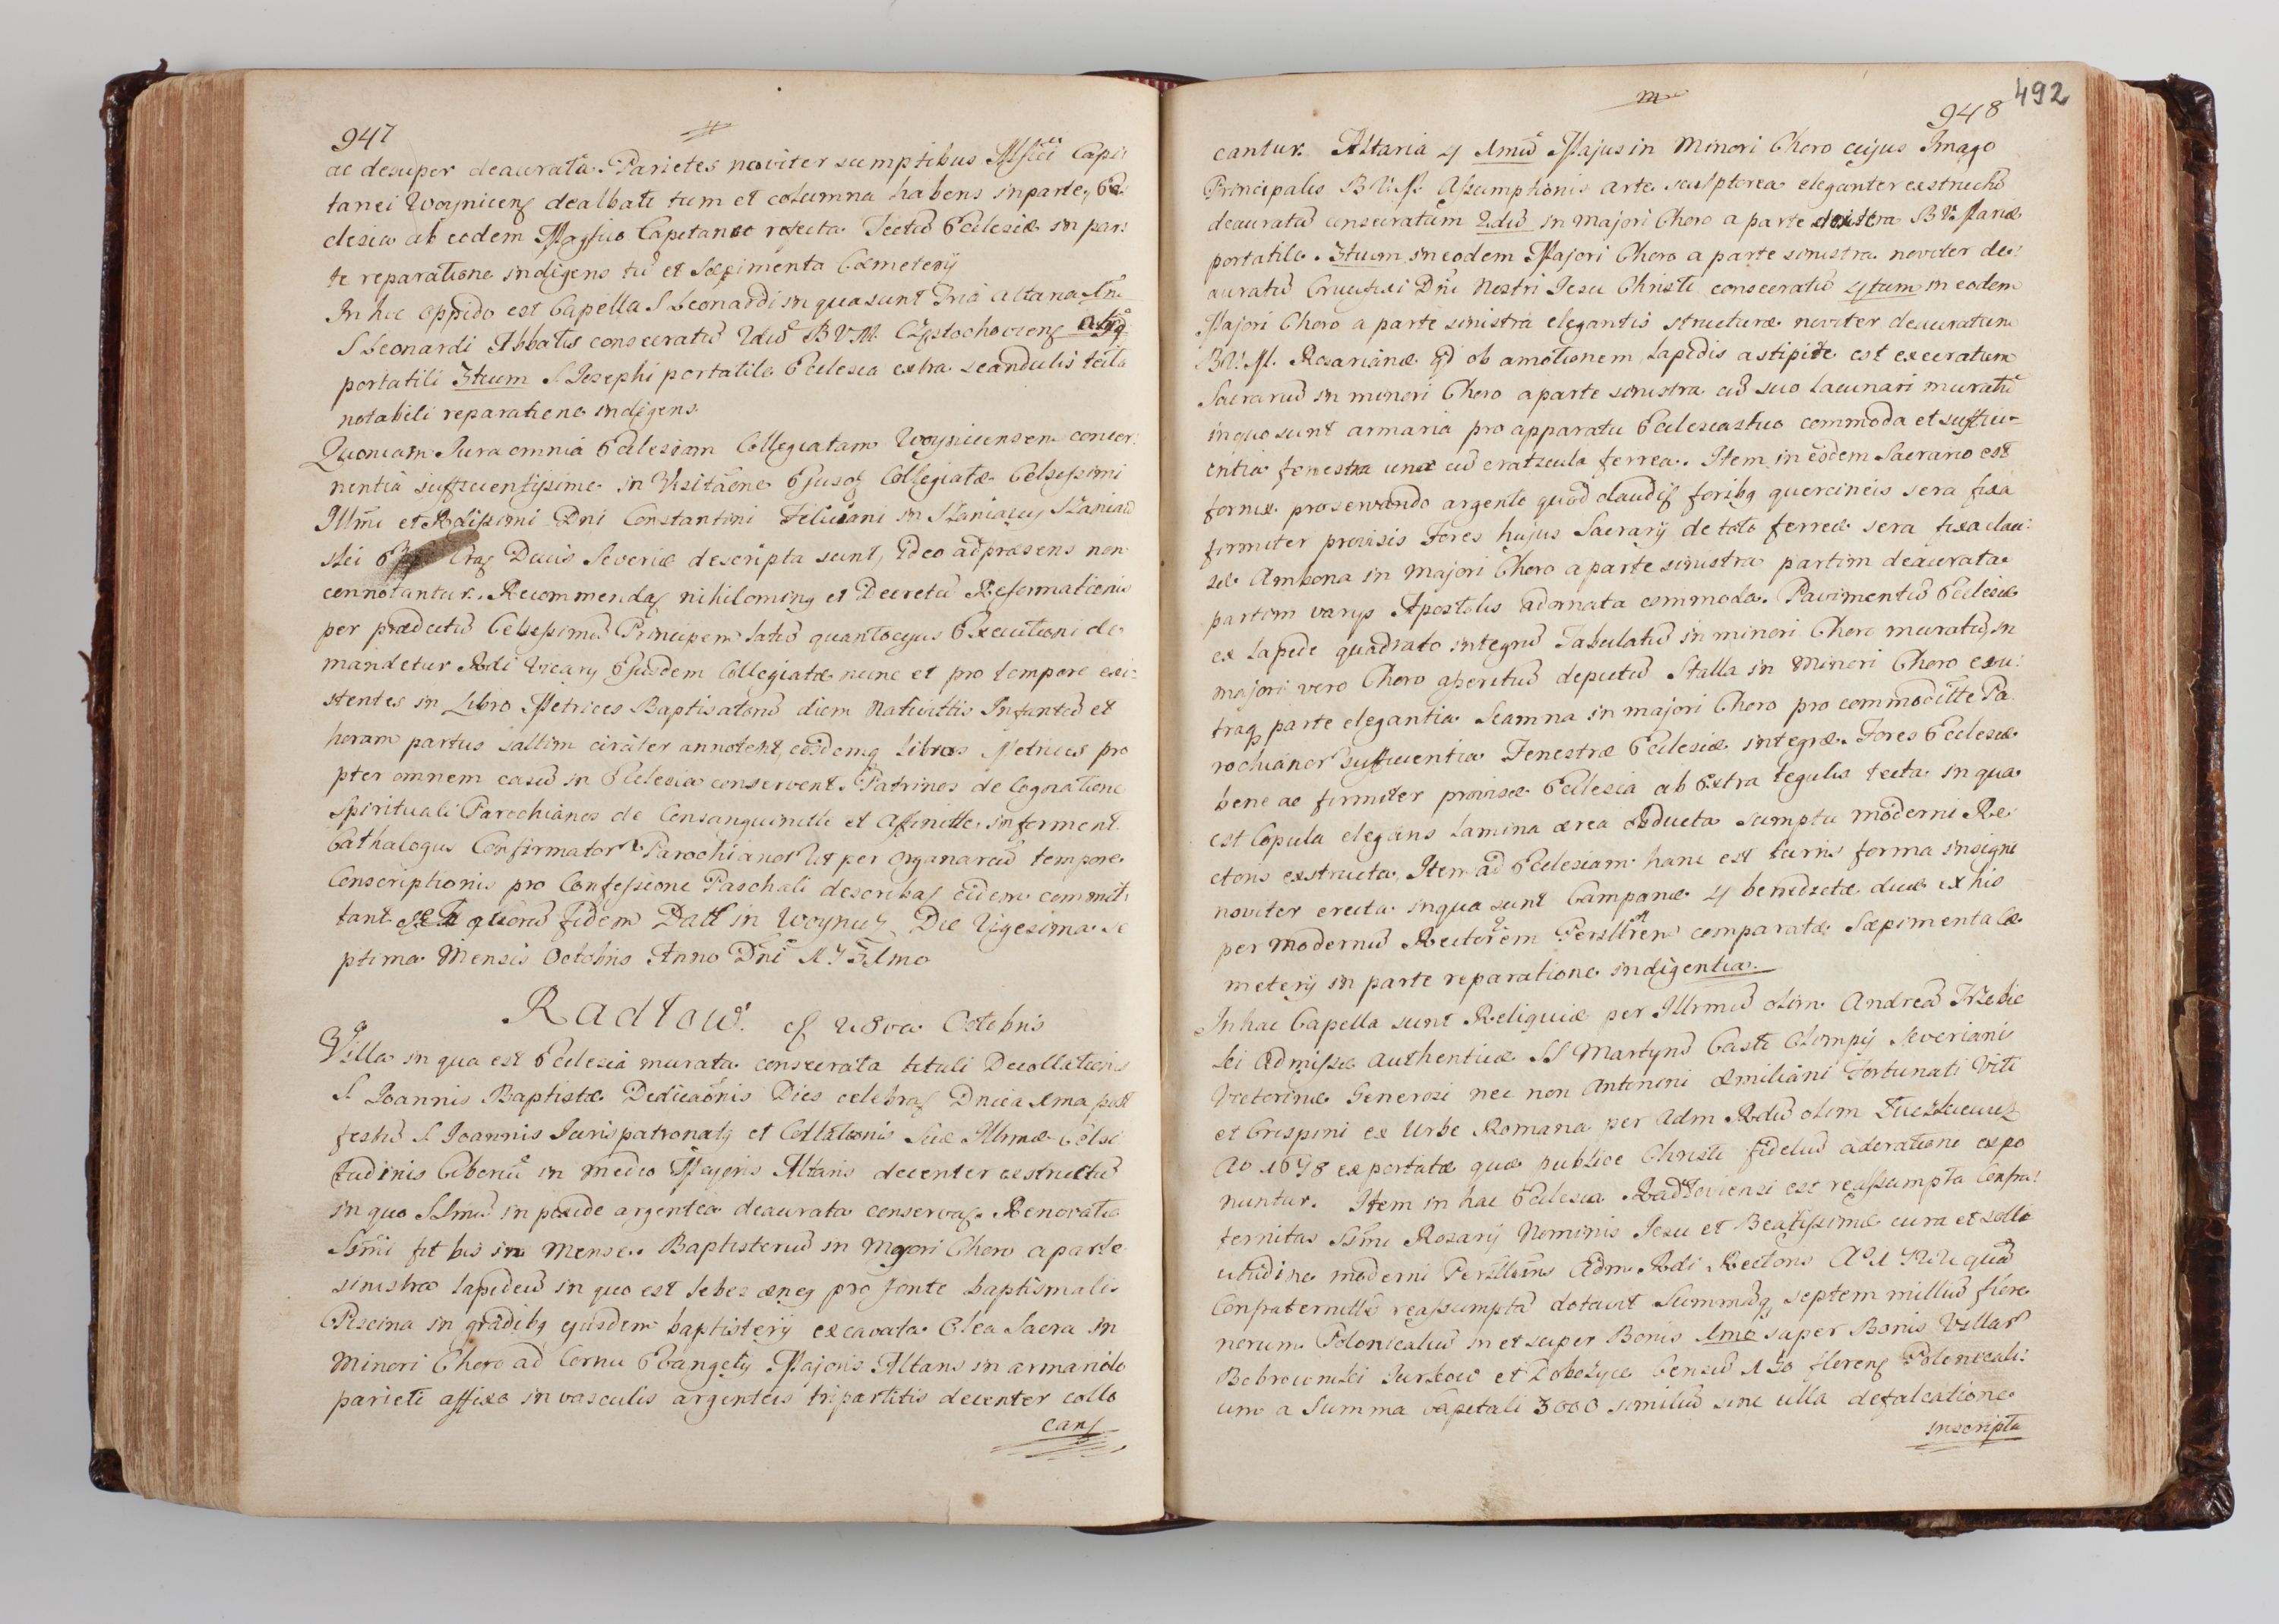 947
ac desuper deaurata. Parietes noviter sumptibus Mfici Capi:
tanei Woyniceñ dealbati tum et columna habens in parte, Ec:
clesia ab eodem Magfico Capitaneo refecta Tectū Ecclesiæ in par:
te reparatione indigens tū et Sæpimenta Cæmeterij
In hoc Oppido est Capella S Leonardi in qua sunt Tria altaria 1m̄
S Leonardi Abbatis consecratū 2dū B V M. Częstochovieñ
portatili 3tium S. Josephi portatile Ecclesia extra scandulis tecta
notabili reparatione indigens.
Quoniam Jura omnia Ecclesiam Collegiatam Woynicensem concer:
nentia sufficientissime in Visitaōne Ejusdȩ Collegiatæ Celsissimi
Illm̄i et Rdissimi Dni Constantini Feliciani in Słaniaỹ Szaniaw
ski Ducis Severiæ descripta sunt, Ideo ad præsens non
connotantur. Recommendaȩ nihilominȩ et Decretū Reformationis
per prædictū Celsissimū Principem latū quantocyus Executioni de
mandetur Rdi Vicarij Ejusdem Collegiatæ nunc et pro tempore exi:
stentes in Libro Metrices Baptisatorū diem Nativittis Infantū et
horam partus saltim circiter annotent, eosdemq Libros Metrices pro
pter omnem casū in Ecclesia conservent. Patrinos de Cognatione
Spirituali Parochianos de Consanguinitte et Affinitte informent.
Cathalogus Confirmatorͬ Parochianorͬ per Organariū tempore
Conscriptionis pro Confessione Paschali describaȩ eidem commit:
tant quorū fidem Datt in Woynicz Die Vigesima Se
ptima Mensis Octobris Anno Dn̄i 1731mo
Radłow. 28va Octobris
Villa in qua est Ecclesia murata consecrata tituli Decollationis
S. Joannis Baptistæ Dedicaōnis Dies celebraȩ Dnica 1ma post
festū S. Joannis Juris patronatȩ et Collationis Suæ Illmæ Celsi
tudinis Ciboriū in medio Majoris Altaris decenter exstructū
in quo SSmū in pixide argentea deaurata conservaȩ. Renovatio
SSm̄i fit bis in Mense. Baptisteriū in Majori Choro a parte
sinistra lapideū in quo est lebes æneȩ pro fonte baptismali
Piscina in gradibȩ ejusdem baptisterij excavata Olea Sacra in
Minori Choro ad Cornu Evangelij Majoris Altaris in armariolo
parieti affixo in vasculis argenteis tripartitis decenter collo
canȩ
492
948
cantur. Altaria 4 1mū Majus in Minori Choro cujus Imago
Principalis B V. M. Assumptionis arte sculptorea eleganter exstructū
deauratū consecratum 2dū in majori Choro a parte dextera B V. Mariæ
portatile. 3tium in eodem Majori Choro a parte sinistra noviter de:
auratū Crucifixi Dn̄i Nostri Jesu Christi consecratū 4tum in eodem
Majori Choro a parte sinistra elegantis structuræ noviter deauratum
B V. M. Rosarianæ qd ob amotionem Lapidis a stipite est execratum
Sacrariū in minori Choro a parte sinistra cū suo Lacunari muratū
in quo sunt armaria pro apparatu Ecclesiastico commoda et suffici=
entia fenestra una cū craticula ferrea. Item in eodem Sacrario est
fornix pro servando argento quod claudiȩ foribȩ quercineis sera fixa
firmiter provisis Fores hujus Sacrarij de toto ferreæ sera fixa clau:
sæ Ambona in Majori Choro a parte sinistra partim deaurata
partim varijs Apostolis adornata commoda. Pavimentū Ecclesiæ
ex Lapide quadrato integrū Tabulatū in minori Choro muratū, in
majori vero Choro asseritiū depictū Stalla in Minori Choro ex u:
traqȝ parte elegantia Scamna in majori Choro pro commoditte Pa
rochianorͬ sufficientia Fenestræ Ecclesiæ integræ. Fores Ecclesiæ
bene ac firmiter provisæ Ecclesia ab Extra tegulis tecta in qua
est Copula elegans Lamina ærea obducta sumptu moderni Re:
ctoris exstructa. Item ad Ecclesiam hanc est turris forma insigni
noviter erecta in qua sunt Campanæ 4 benedictæ duæ ex his
per modernū Rectorem Perilltrem comparatæ Sæpimenta Cæ
meterij in parte reparatione indigentia.
In hac Capella sunt Reliquiæ per Illrmū olim Andreā Trzebic
ki admissæ authenticæ SS Martyrū Casti Olompij Severiani
Victorinæ Generosi nec non Antonini Æmiliani Fortunati Viti
et Crispini ex Urbe Romana per Adm Rdū olim
Ao 1698 exportatæ quæ publice Christi fideliū adorationi expo
nuntur. Item in hac Ecclesia Radłoviensi est reassumpta Confra:
ternitas SSmi Rosarij Nominis Jesu et Beatissimæ cura et solli
citudine moderni Perilltris Adm. Rdi Rectoris quā
Confraternittē reassumptā dotavit Summāqȝ septem milliū flore
norum Polonicaliū in et super Bonis 1mo super Bonis Villarͬ
Bobrowniki Jurkow et Dobołyce Censū 150 floreñ Polonicali:
um a Summa Capitali 3000 similiū sine ulla defalcatione
inscripta